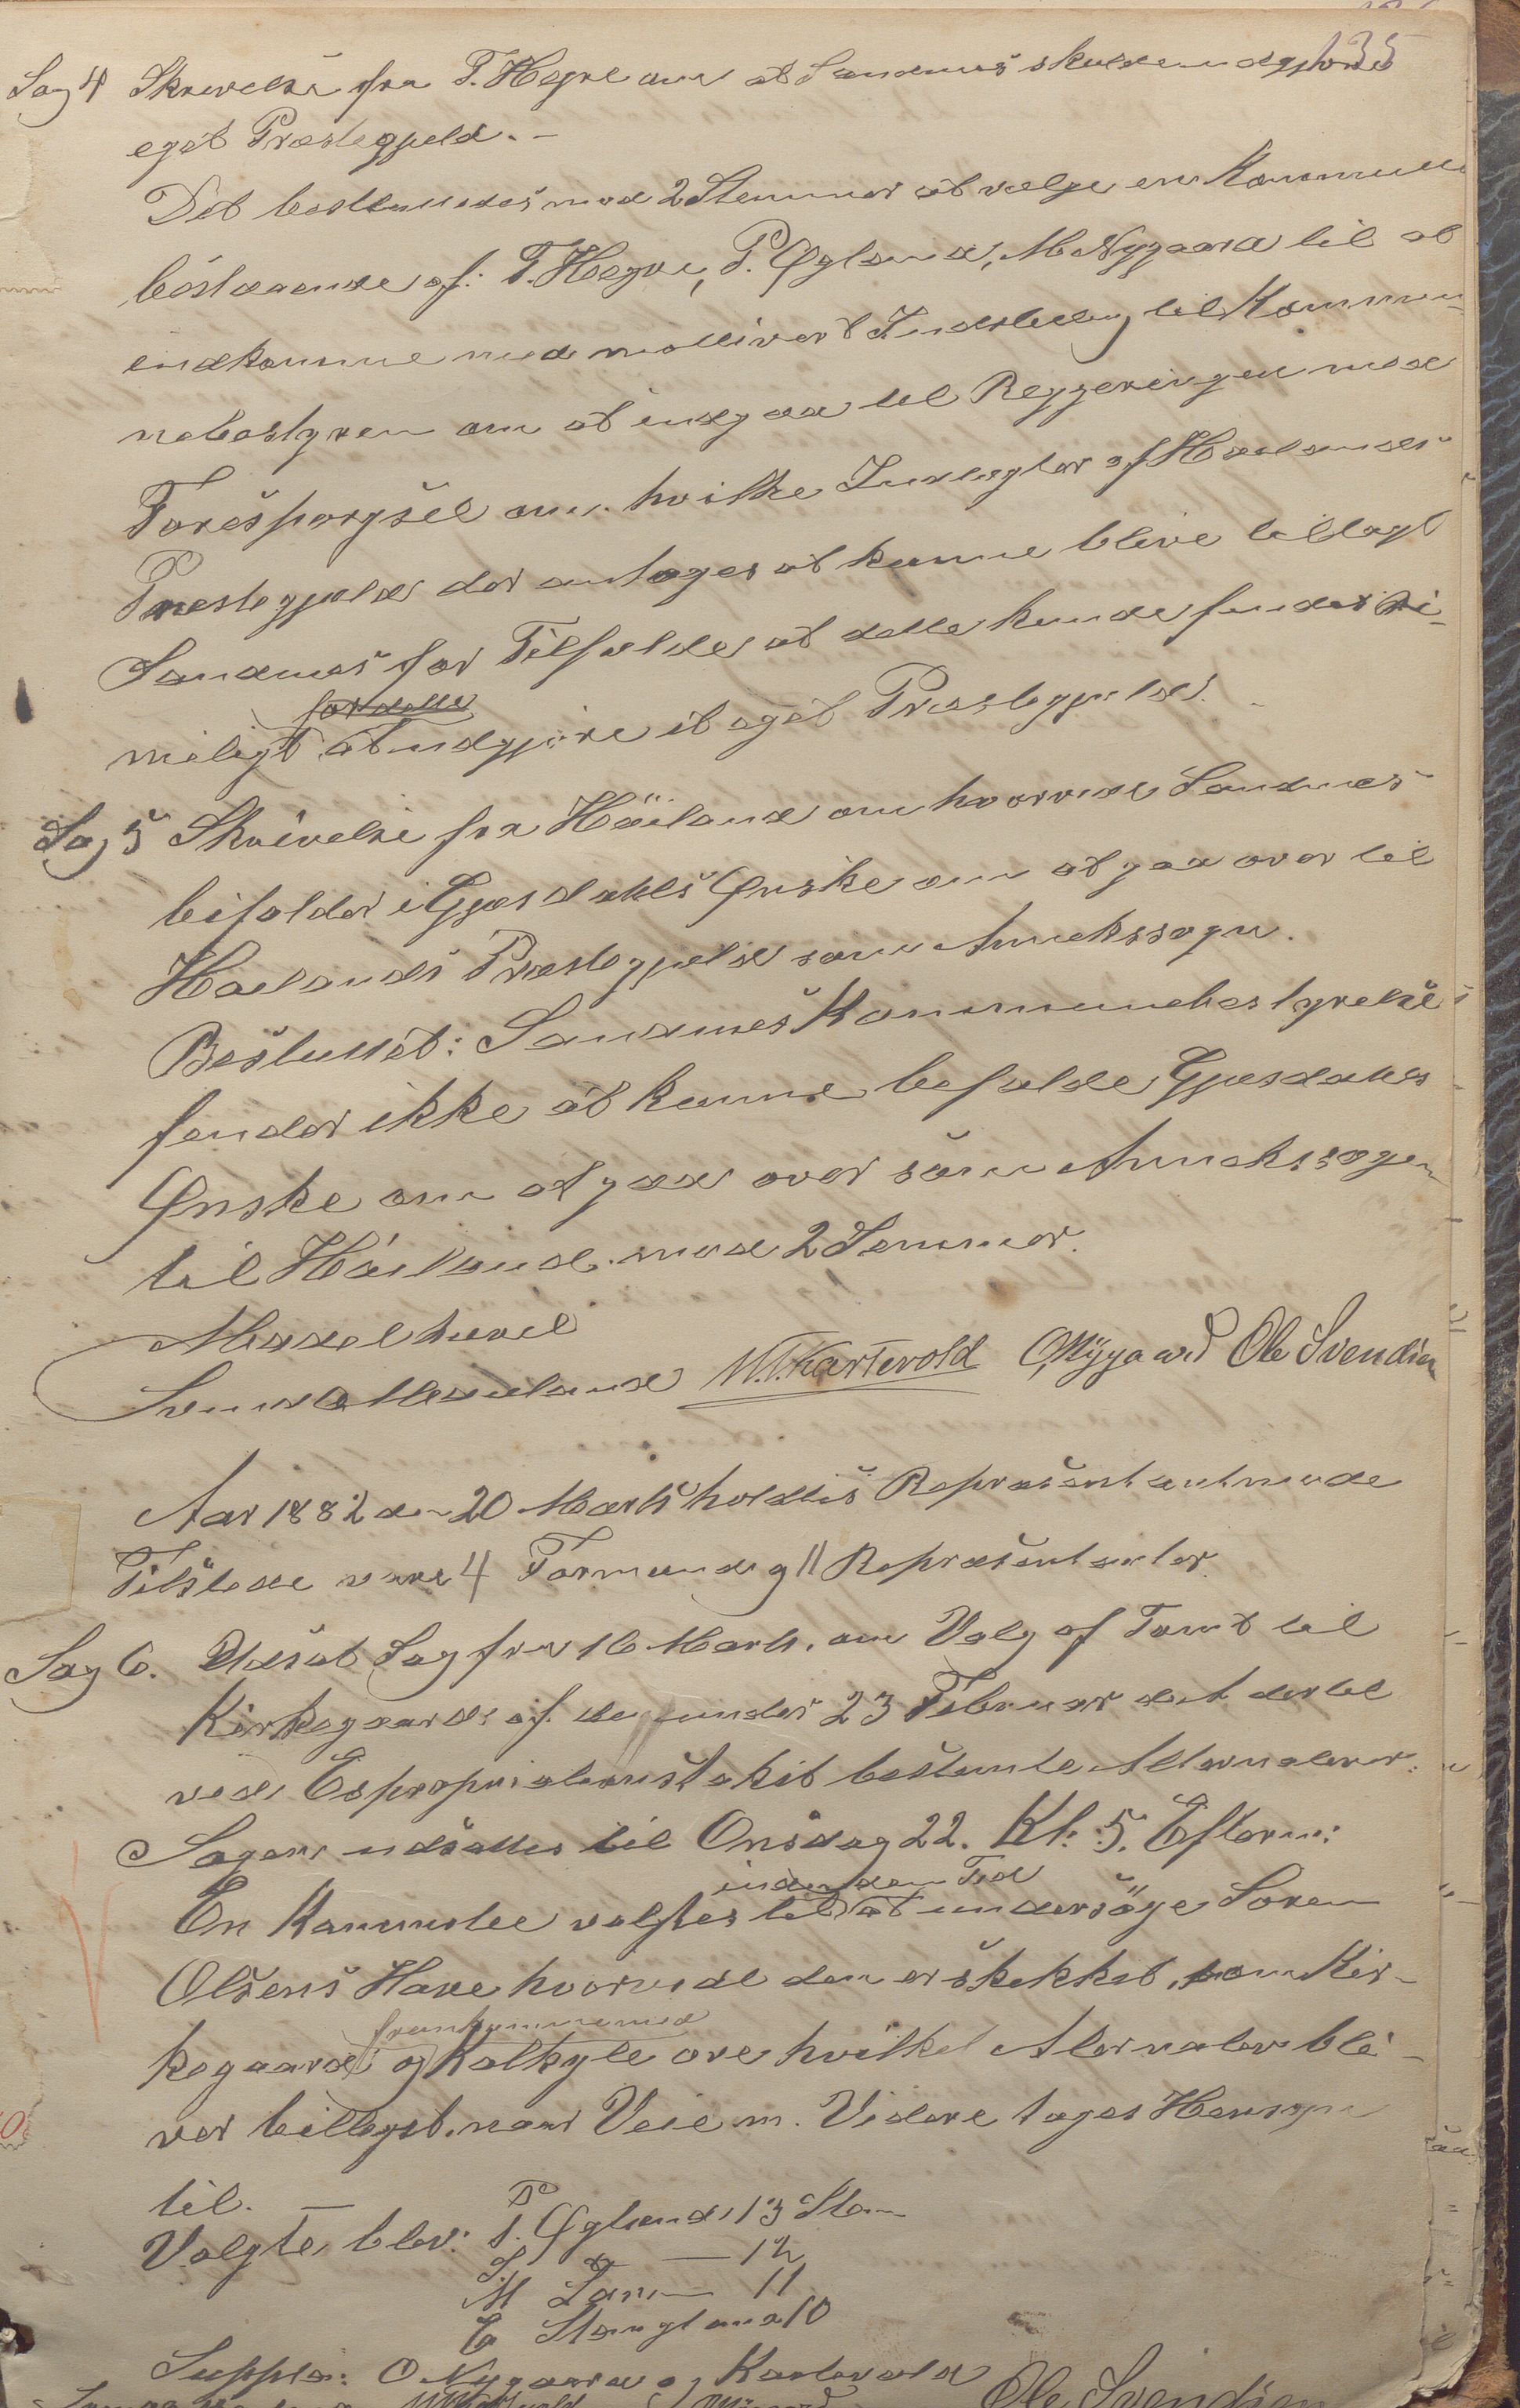 135
Sag 4 Skrivelse fra T. Hegre om at Sandnæs skulde udgjøre
eget Præstegjeld. -
Det besluttedes mod 2 Stemmer at vælge en Kommitte
bestaaende af: T. Hegre, P. Øglænd, M Nygaard til at
indkomme med motiveret Indstilling til Kommu-
nebestyren om at indgaa til Reggeringen med
Forespørgsel om hvilke Indtægter af Høilands
Præstegjeld der antages at kunne blive tillagt
Sandnæs for Tilfælde at dette kunde findes ri-
meligt at udgjøre et eget Præstegjeld. -
Sag 5 Skrivelse fra Höiland om hvorvidt Sandnæs
bifalder i Gjesdahls Ønske om at gaa over til
Høilands Præstegjeld som Annekssogn.
Besluttet: Sandnæs Kommunebestyrelse
finder ikke at kunne befalde Gjesdahls
Ønske om at gaa over som Annekssogn
til Høiland mod 2 Stemmer.
Mødet hævet
M. T. Kartevold O Nygaard Ole Svendsen
Aar 1882 den 20 Marts holdtes Repræsentantmøde
Tilstede vare 4 Formænd og 11 Repræsentanter.
Sag 6. Udsat Sag fra 16 Marts. om Valg af Tomt til
Kirkegaard af de under 23 Februar dertil
ved Expropriationstakst bestemte Alternativer.
Sagen udsættes til Onsdag 22. Kl: 5. Efterm:
inden den Tid
En Kommitee valgtes til at undersöge Soren
Olsens Have hvorvidt den er skikket som Kir-
fremkomme med
kegaard og Kalkyle over hvilket Alternativ bli-
ver billigst. naar Veie m. Videre tages Hensyn
til. —
Valgte blev: P. Øglænd 13 Stem
S. do — 12
M Tarm — 11
E Stangeland 10
Supplø: O Nygaard og Kartevold
Ole Svendsen